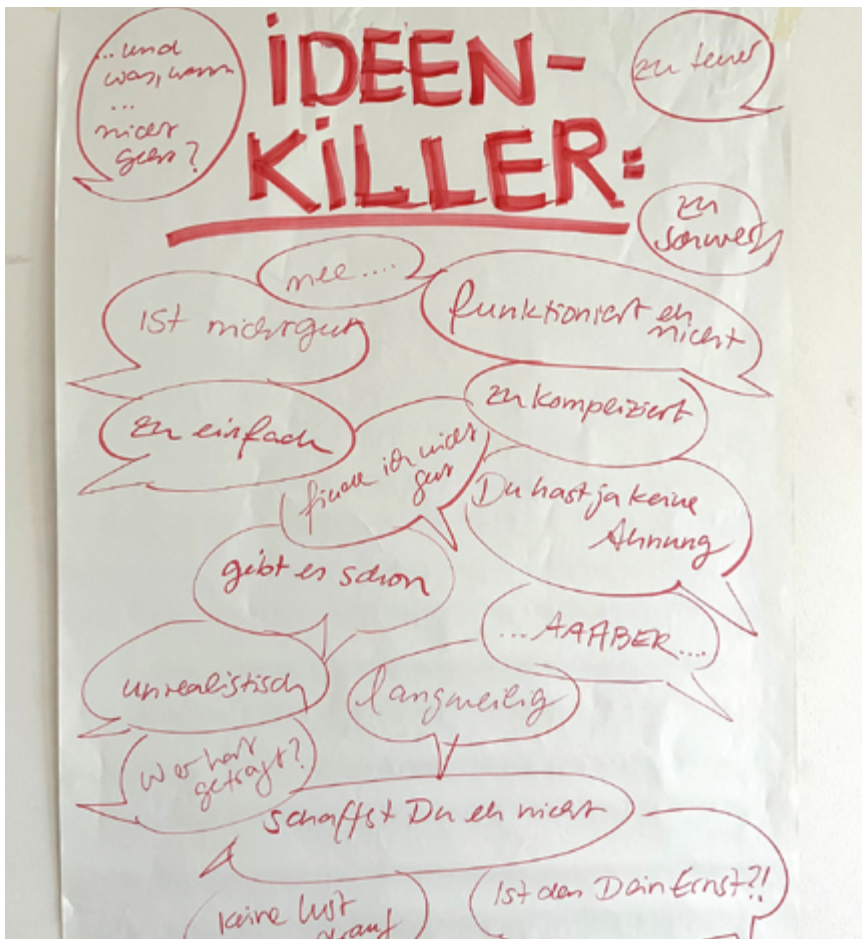 IDEEN-
KILLER:
...und
was, wenn
...
nicht
geht?
zu teuer
zu
schwer
nee....
ist nicht gut
funktioniert eh
nicht
zu einfach
zu kompliziert
finde ich nicht
gut
Du hast ja keine
Ahnung
gibt es schon
...AAABER...
unrealistisch
langweilig
Wer hat
gefragt?
schaffst Du eh nicht
Ist das Dein Ernst?!
keine Lust
drauf